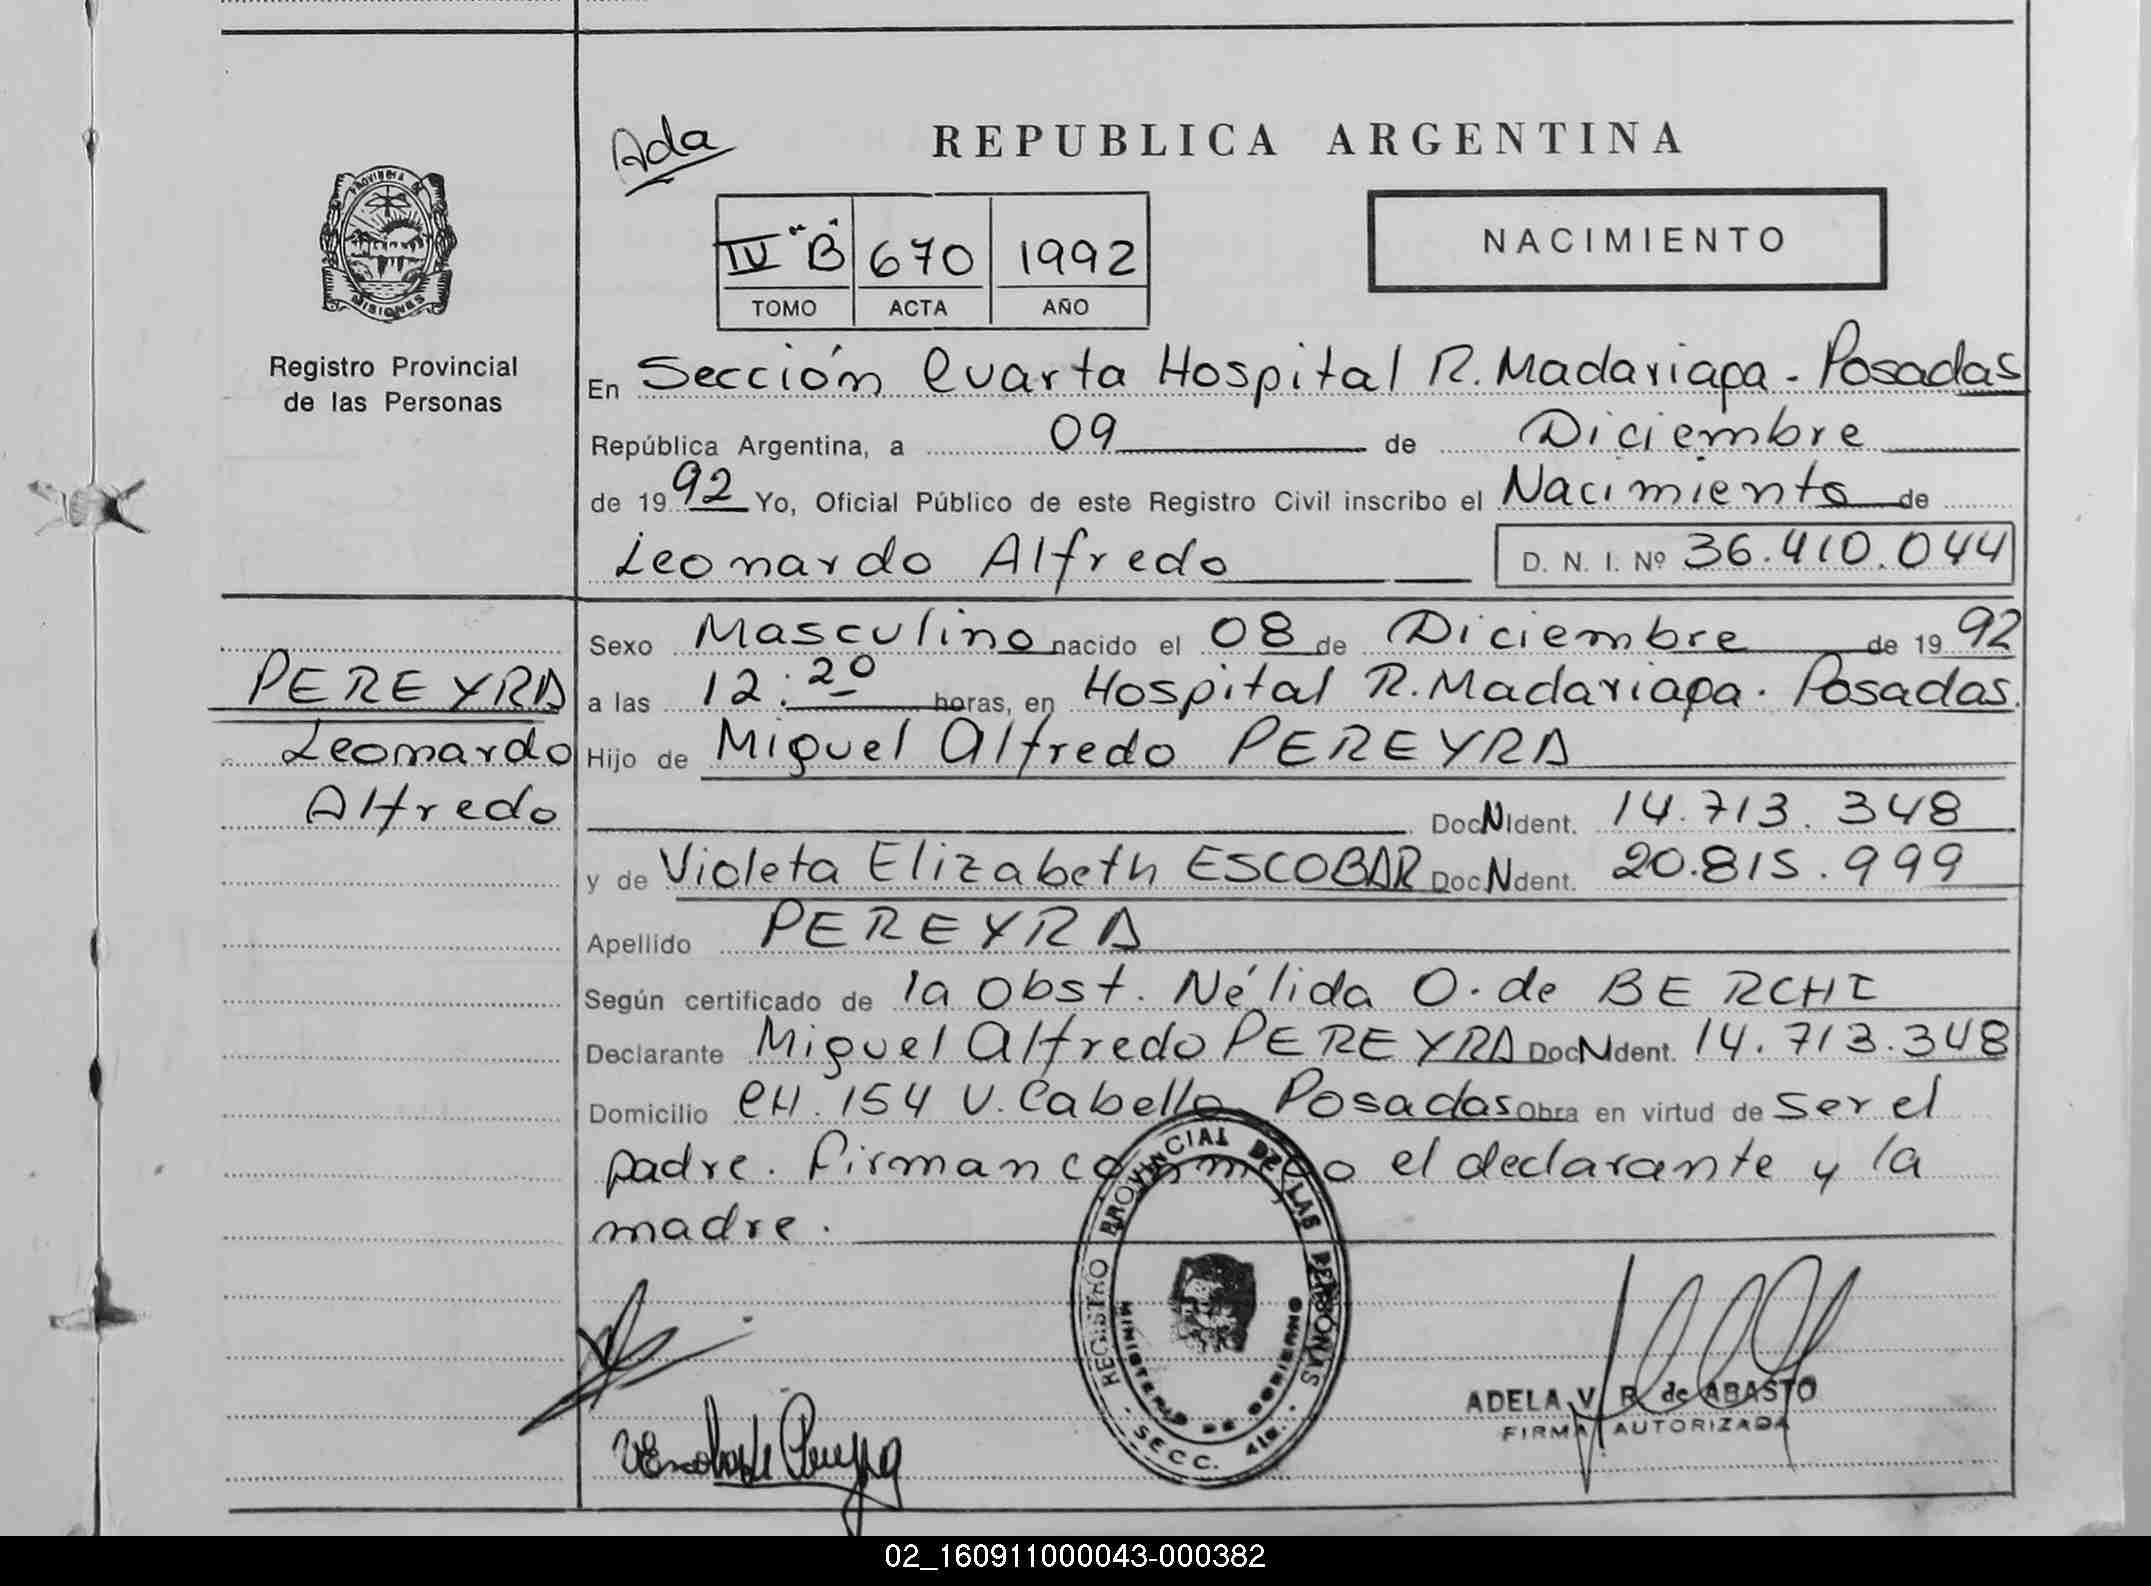 Ada
REPUBLICA ARGENTINA
IV "B" 670 1992
TOMO ACTA AÑO
NACIMIENTO
PROVINCIA DE
MISIONES
Registro Provincial
de las Personas
En Sección Cuarta Hospital R. Madariaga - Posadas
República Argentina, a 09 de Diciembre
de 1992 Yo, Oficial Público de este Registro Civil inscribo el Nacimiento de
Leonardo Alfredo D. N. I. Nº 36.410.044
PEREYRA
Leonardo
Alfredo
Sexo Masculino nacido el 08 de Diciembre de 1992
a las 12:20 horas, en Hospital R. Madariaga. Posadas.
Hijo de Miguel Alfredo PEREYRA
Doc N Ident. 14.713.348
y de Violeta Elizabeth ESCOBAR Doc N dent. 20.815.999
Apellido PEREYRA
Según certificado de la Obst. Nélida O. de BERCHI
Declarante Miguel Alfredo PEREYRA Doc N dent. 14.713.348
Domicilio CH. 154 V. Cabello Posadas Obra en virtud de ser el
padre. Firman conmigo el declarante y la
madre.
REGISTRO PROVINCIAL DE LAS PERSONAS
MINISTERIO DE GOBIERNO
- SECC. 4ta. -
ADELA V. R. de ABASTO
FIRMA AUTORIZADA
02_160911000043-000382